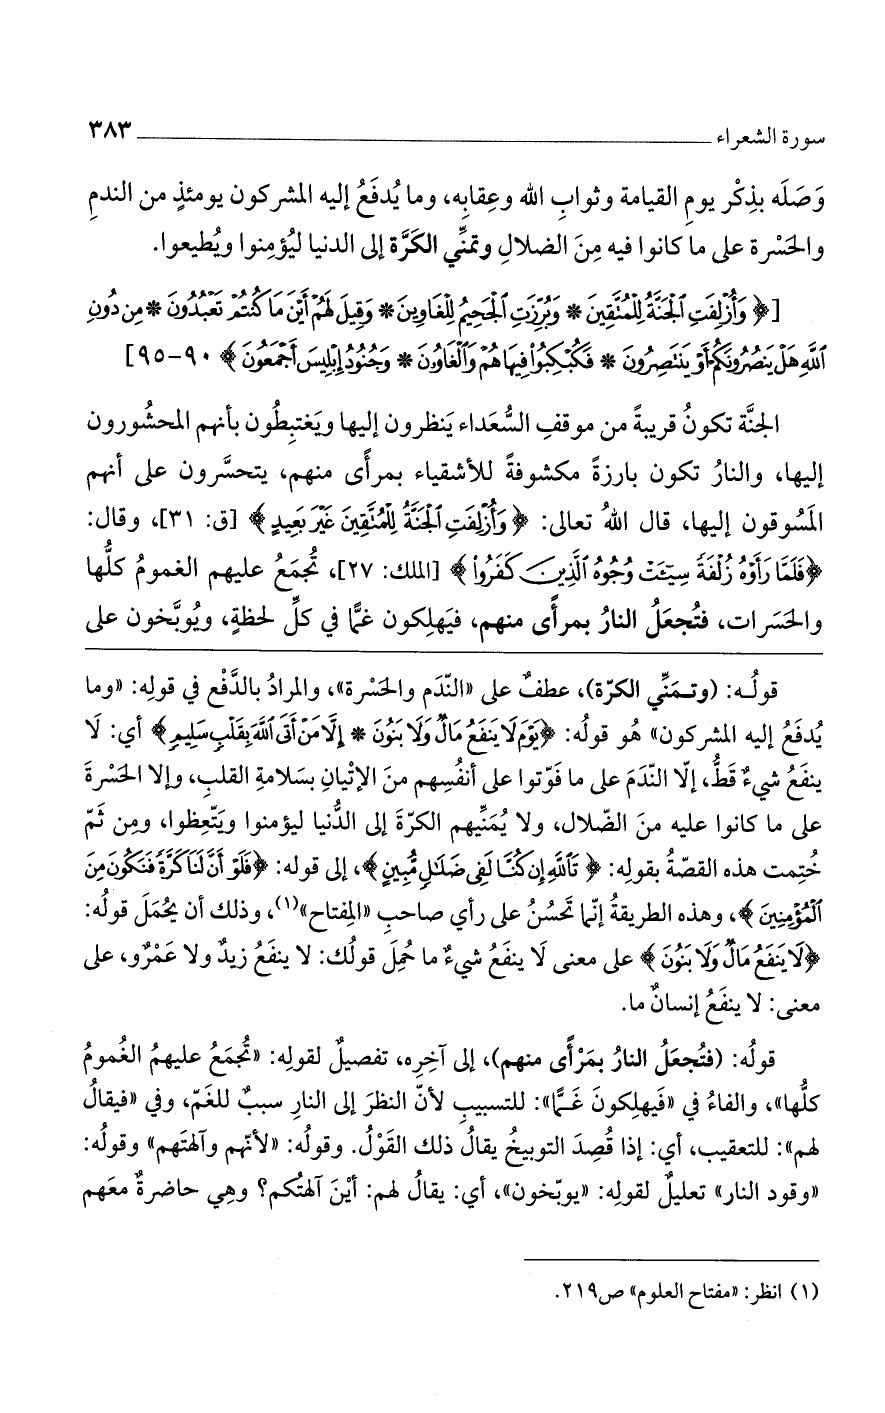 سورة الشعراء ٣٨٣
وَصَلَه بذِكْر يومِ القيامة وثوابِ الله وعِقابِه، وما يُدفَعُ إليه المشركون يومئذٍ من الندمِ
والحَسْرة على ما كانوا فيه مِنَ الضلالِ وتمنِّي الكَرَّة إلى الدنيا ليُؤمِنوا ويُطيعوا.
[﴿وَأُزْلِفَتِ ٱلْجَنَّةُ لِلْمُنَّقِينَ * وَبُرِّزَتِ ٱلْجَحِيمُ لِلْغَاوِينَ * وَقِيلَ لَهُمْ أَيْنَ مَا كُنتُمْ تَعْبُدُونَ * مِن دُونِ
ٱللَّهِ هَلْ يَنصُرُونَكُمْ أَوْ يَنتَصِرُونَ * فَكُبْكِبُوا۟ فِيهَا هُمْ وَٱلْغَاوُۥنَ * وَجُنُودُ إِبْلِيسَ أَجْمَعُونَ﴾ ٩٠-٩٥]
الجنَّة تكونُ قريبةً من موقفِ السُّعَداء يَنظرون إليها ويَغتبِطُون بأنهم المحشُورون
إليها، والنارُ تكون بارزةً مكشوفةً للأشقياء بمرأى منهم، يتحسَّرون على أنهم
المَسُوقون إليها، قال اللهُ تعالى: ﴿وَأُزْلِفَتِ ٱلْجَنَّةُ لِلْمُتَّقِينَ غَيْرَ بَعِيدٍ﴾ [ق: ٣١]، وقال:
﴿فَلَمَّا رَأَوْهُ زُلْفَةً سِيٓـَٔتْ وُجُوهُ ٱلَّذِينَ كَفَرُوا۟﴾ [الملك: ٢٧]، تُجمَعُ عليهم الغمومُ كلُّها
والحَسَرات، فتُجعَلُ النارُ بمرأى منهم، فيَهلِكون غمًّا في كلِّ لحظةٍ، ويُوبَّخون على
قولُه: (وتـمَنِّي الكرّة)، عطفٌ على «النّدَم والحَسْرة»، والمرادُ بالدَّفْع في قولِه: «وما
يُدفَعُ إليه المشركون» هُو قولُه: ﴿يَوْمَ لَا يَنفَعُ مَالٌ وَلَا بَنُونَ * إِلَّا مَنْ أَتَى ٱللَّهَ بِقَلْبٍ سَلِيمٍ﴾ أي: لَا
ينفَعُ شيءٌ قَطُّ، إلّا النّدَمَ على ما فَوّتوا على أنفُسِهم منَ الإتْيانِ بسَلامةِ القلبِ، وإلا الحَسْرةَ
على ما كانوا عليه منَ الضّلال، ولا يُمَنِّيهم الكرّةَ إلى الدُّنيا ليؤمنوا ويَتّعِظوا، ومِن ثَمّ
خُتِمت هذه القصّةُ بقولِه: ﴿تَٱللَّهِ إِن كُنَّا لَفِى ضَلَـٰلٍ مُّبِينٍ﴾، إلى قوله: ﴿فَلَوْ أَنَّ لَنَا كَرَّةً فَنَكُونَ مِنَ
ٱلْمُؤْمِنِينَ﴾، وهذه الطريقةُ إنّما تَحسُنُ على رأي صاحبِ «المِفتاح»(١)، وذلك أن يُحْمَلَ قولُه:
﴿لَا يَنفَعُ مَالٌ وَلَا بَنُونَ﴾ على معنى لَا ينفَعُ شيءٌ ما حُمِلَ قولُك: لا ينفَعُ زيدٌ ولا عَمْرٌو، على
معنى: لا ينفَعُ إنسانٌ ما.
قولُه: (فتُجعَلُ النارُ بمَرْأى منهم)، إلى آخِرِه، تفصيلٌ لقولِه: «تُجمَعُ عليهمُ الغُمومُ
كلُّها»، والفاءُ في «فَيهلِكونَ غَـمًّا»: للتسبيبِ لأنّ النظرَ إلى النارِ سببٌ للغَمّ، وفي «فيقالُ
لهم»: للتعقيب، أي: إذا قُصِدَ التوبيخُ يقالُ ذلك القَوْلُ. وقولُه: «لأنّهم وآلهتَهم» وقولُه:
«وقود النار» تعليلٌ لقولِه: «يوبّخون»، أي: يقالُ لهم: أيْنَ آلهتُكم؟ وهِي حاضرةٌ معَهم
(١) انظر: «مفتاح العلوم» ص٢١٩.